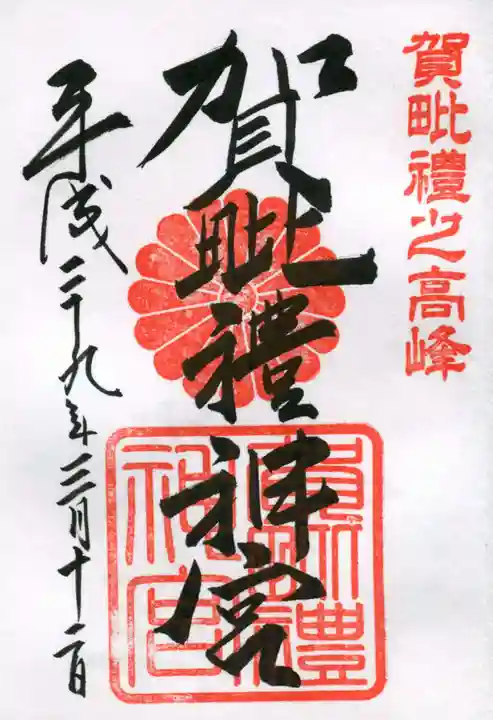 賀毗禮之高峰
賀毗禮神宮
平成二十九年三月十二日
賀毗禮神宮